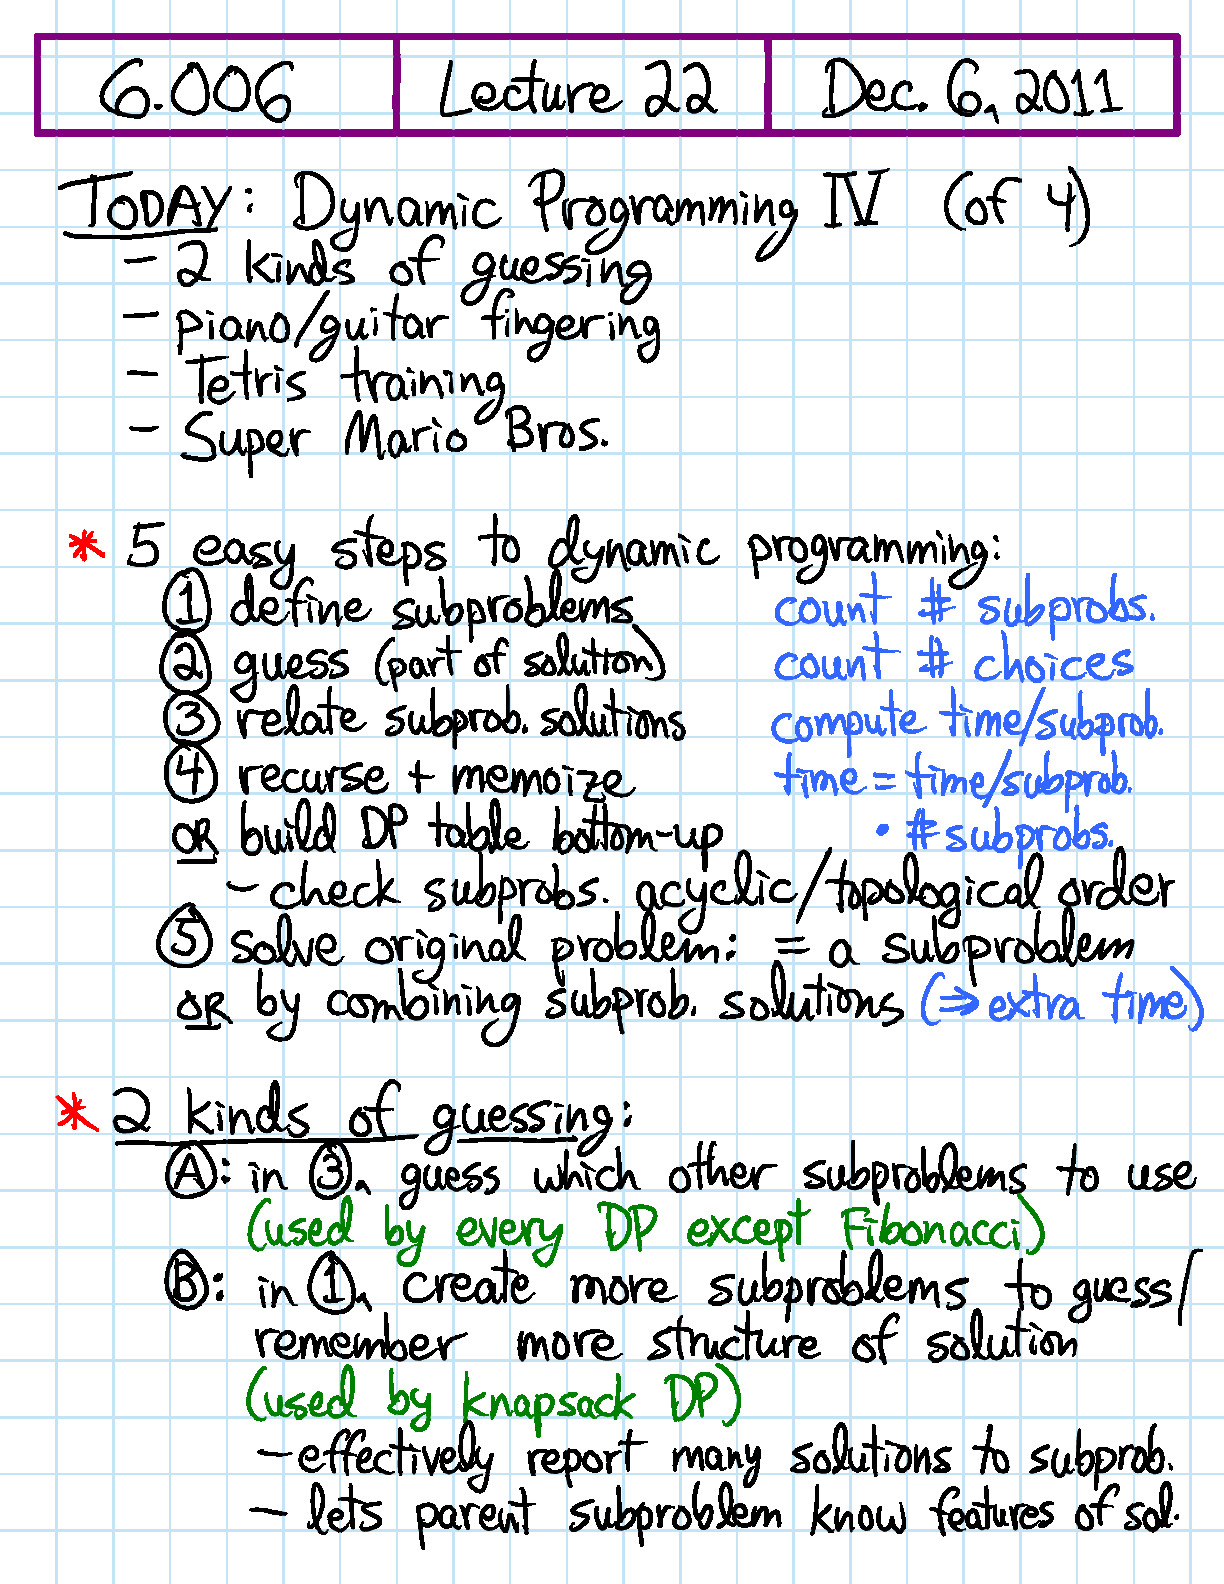 6.006 Lecture 22 Dec. 6, 2011
TODAY: Dynamic Programming IV (of 4)
- 2 kinds of guessing
- piano/guitar fingering
- Tetris training
- Super Mario Bros.
* 5 easy steps to dynamic programming:
① define subproblems count # subprobs.
② guess (part of solution) count # choices
③ relate subprob. solutions compute time/subprob.
④ recurse + memoize time = time/subprob.
OR build DP table bottom-up • # subprobs.
- check subprobs. acyclic/topological order
⑤ solve original problem: = a subproblem
OR by combining subprob. solutions (⇒ extra time)
* 2 kinds of guessing:
Ⓐ: in ③, guess which other subproblems to use
(used by every DP except Fibonacci)
Ⓑ: in ①, create more subproblems to guess/
remember more structure of solution
(used by knapsack DP)
- effectively report many solutions to subprob.
- lets parent subproblem know features of sol.